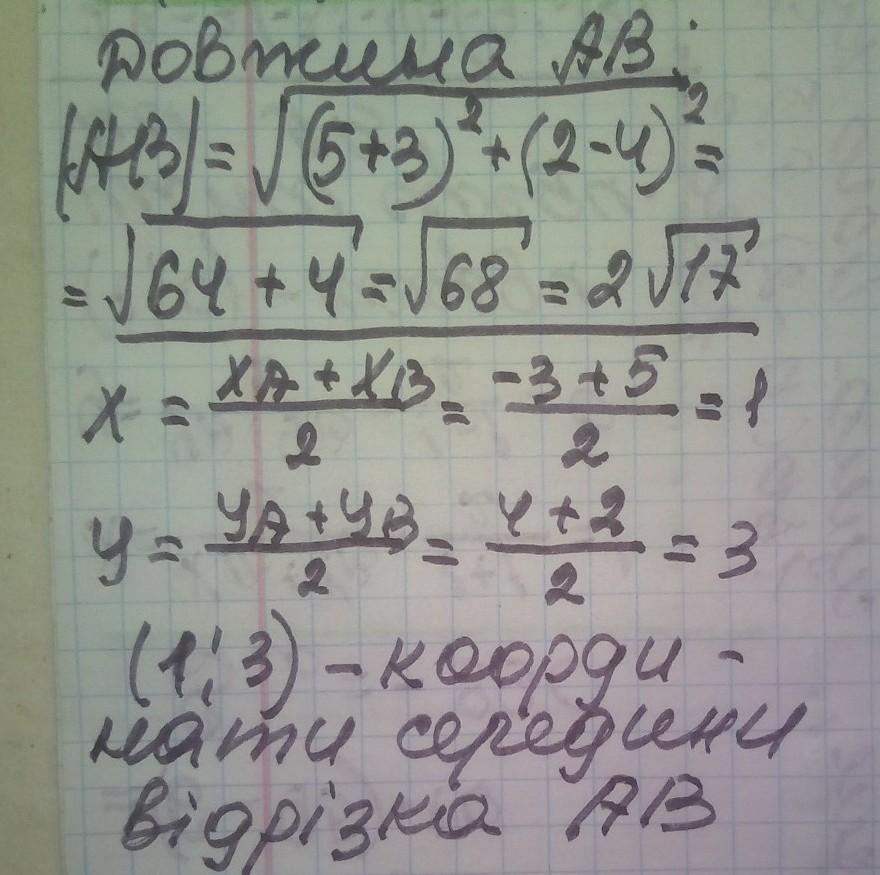 Довжина AB:
|AB| = √(5+3)² + (2-4)² =
= √64 + 4 = √68 = 2√17
x = xA + xB / 2 = -3 + 5 / 2 = 1
y = yA + yB / 2 = 4 + 2 / 2 = 3
(1; 3) - коорди -
нати середини
відрізка AB